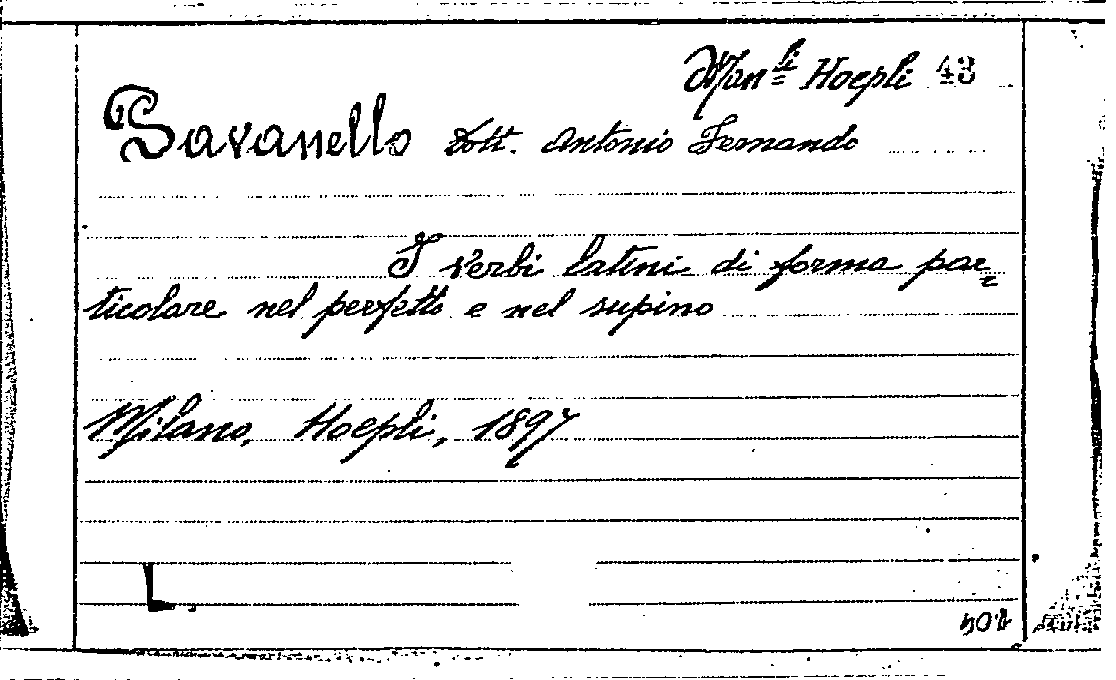 Man.li Hoepli 43
Pavanello Dott. Antonio Fernando
I verbi latini di forma par=
ticolare nel perfetto e nel supino
Milano, Hoepli, 1897
L.